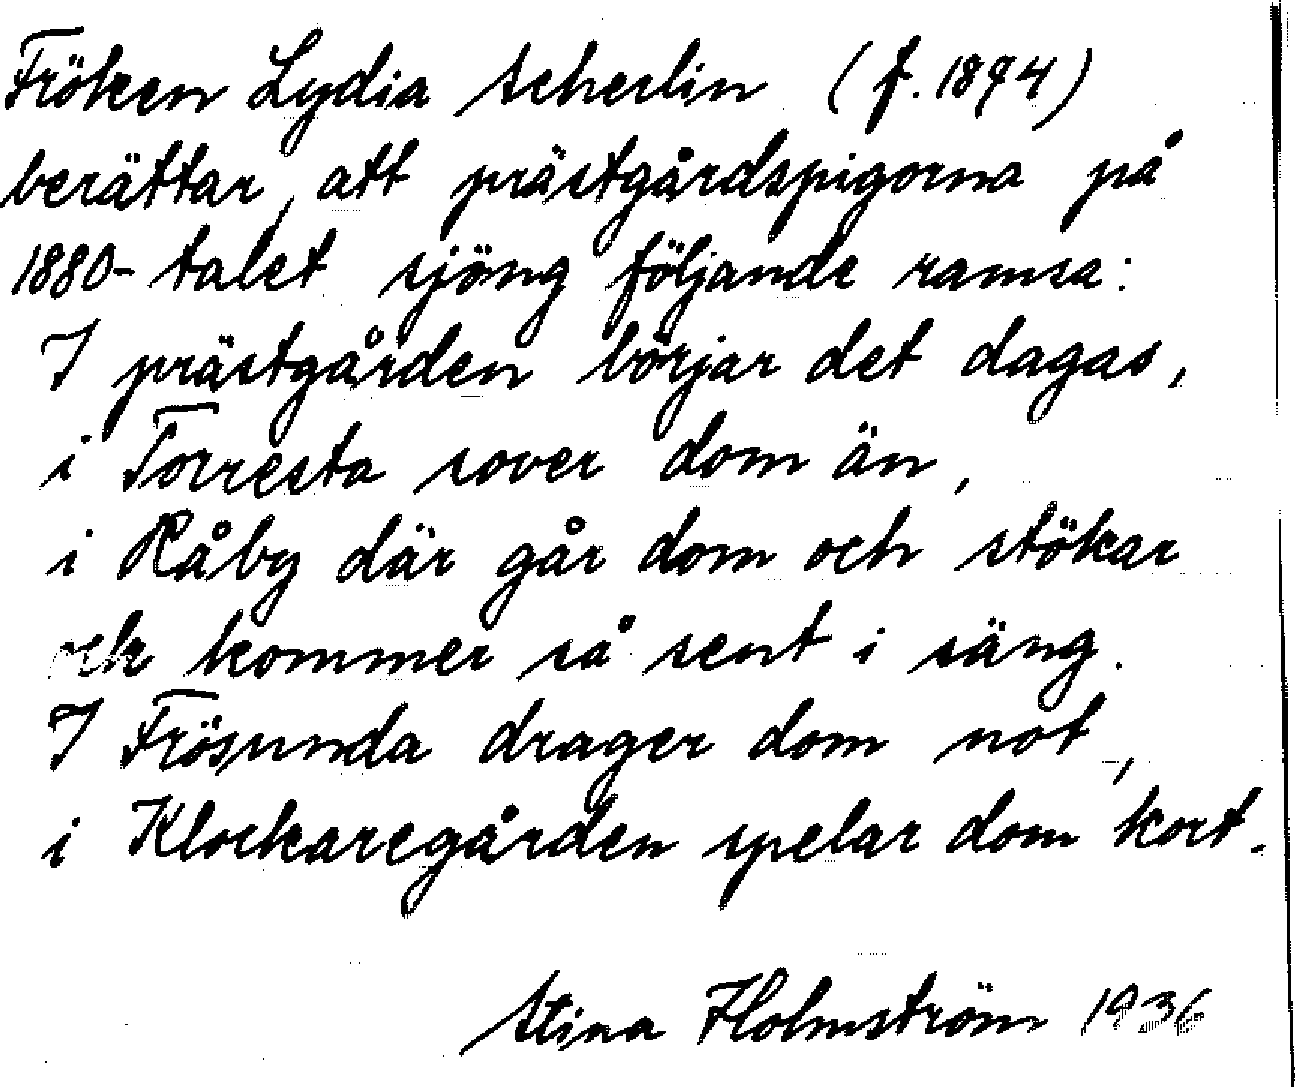 Fröken Lydia Scherlin (f. 1874)
berättar, att prästgårdspigorna på
1880-talet sjöng följande ramsa:
I prästgården börjar det dagas,
i Torresta sover dom än,
i Råby där går dom och stökar
och kommer så sent i säng.
I Frösunda drager dom not,
i Klockaregården spelar dom kort.
Stina Holmström 1936